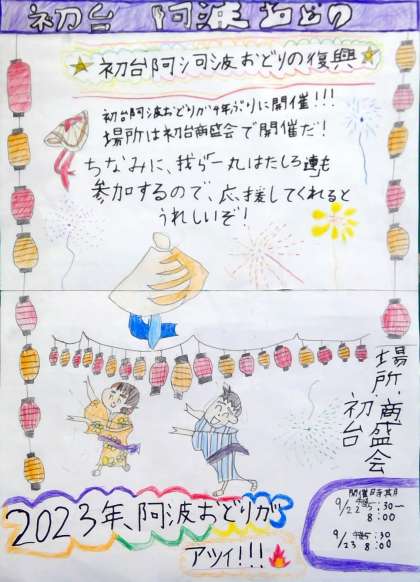 初台 阿波おどり
初台阿河波おどりの復興
初台阿波おどりが4年ぶりに開催!!!
場所は初台商盛会で開催だ!
ちなみに、我らが一丸はたしろ連も
参加するので、応援してくれると
うれしいぞ!
場所:商盛会
初台
2023年、阿波おどりが
アツイ!!!
開催日時
9/22 午後5:30〜
8:00
9/23 午後5:30
8:00